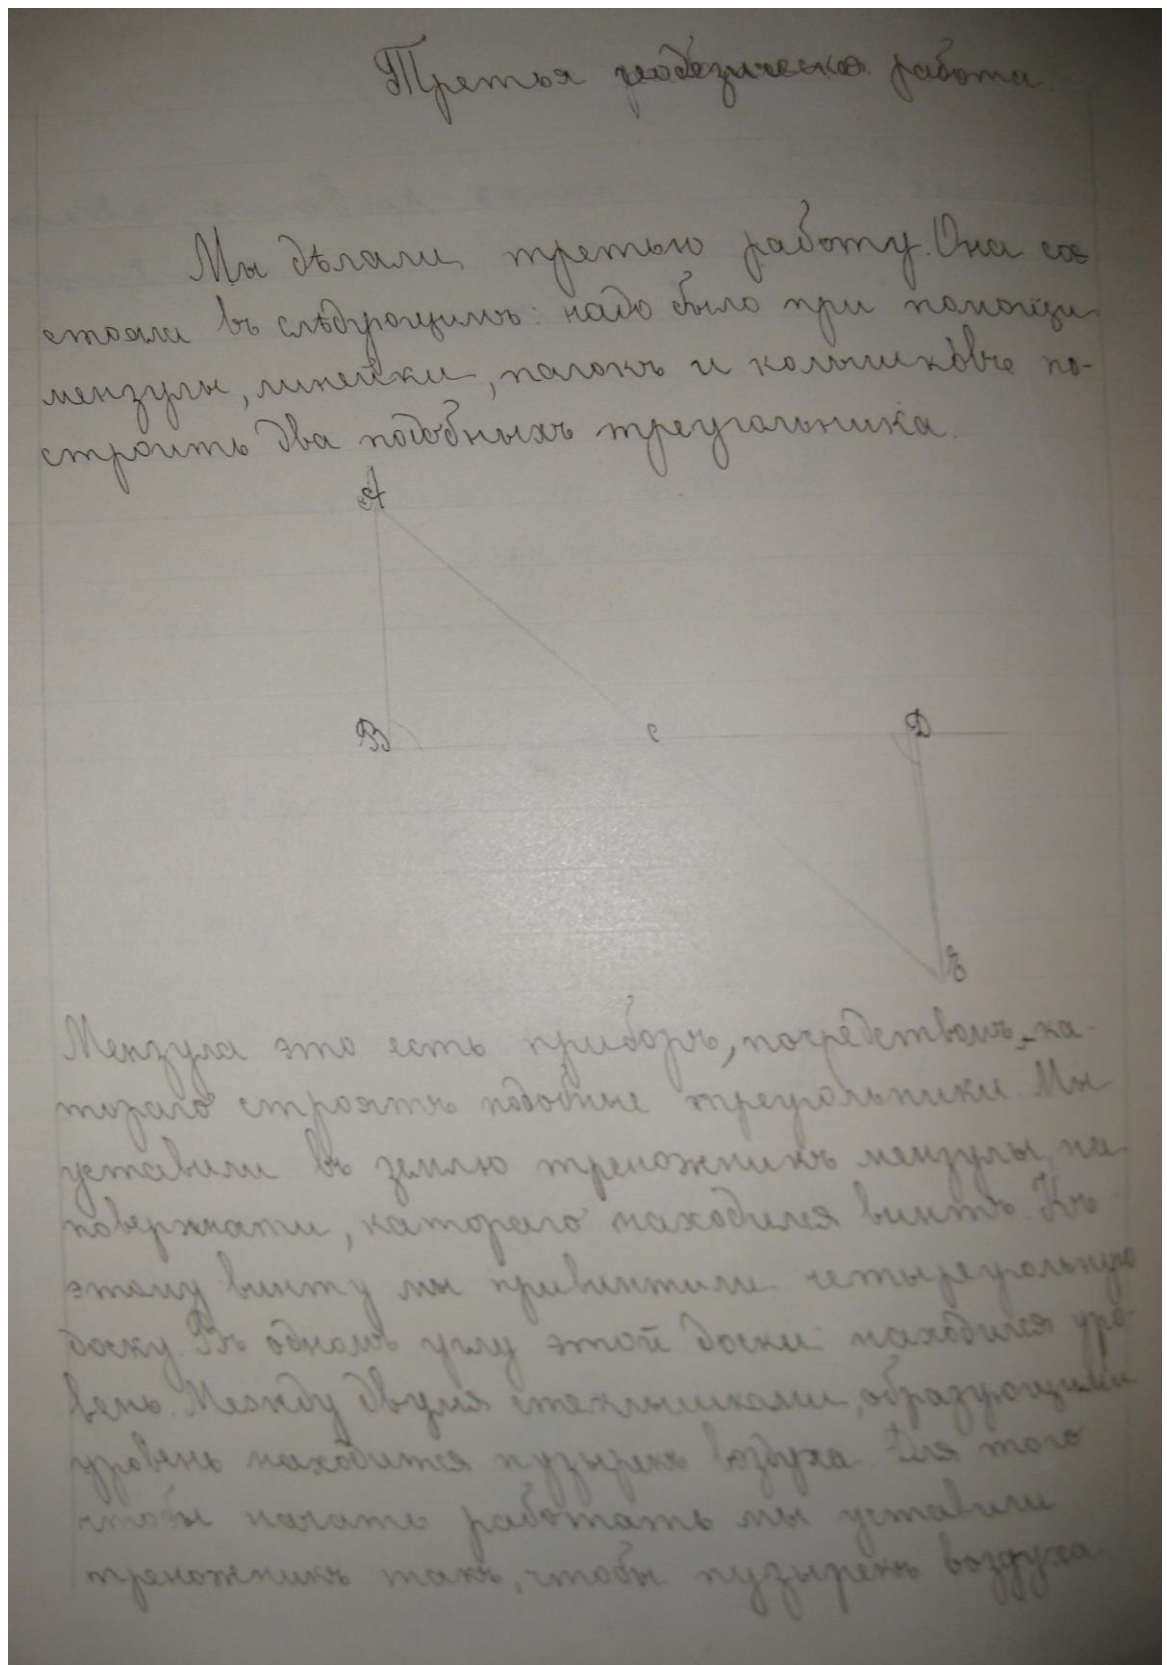 Третья геодезическая работа.
Мы дѣлали третью работу. Она сос
стояла въ слѣдующимъ: надо было при помощи
мензулы, линейки, палокъ и колышковъ по-
строить два подобныхъ треугольника.
А
В с D
Е
Мензула это есть приборъ, посредствомъ ка-
тораго строятъ подобные треугольники. Мы
уставили въ землю треножникъ мензулы, на
поверхнати, катораго находился винтъ. Къ
этому винту мы привинтили четыреугольную
доску. Въ одномъ углу этой доски находился уро-
вень. Между двумя стеклышками, образующими
уровень находится пузырекъ воздуха. Для того
чтобы начать работать мы уставили
треножникъ такъ, чтобы пузырекъ воздуха